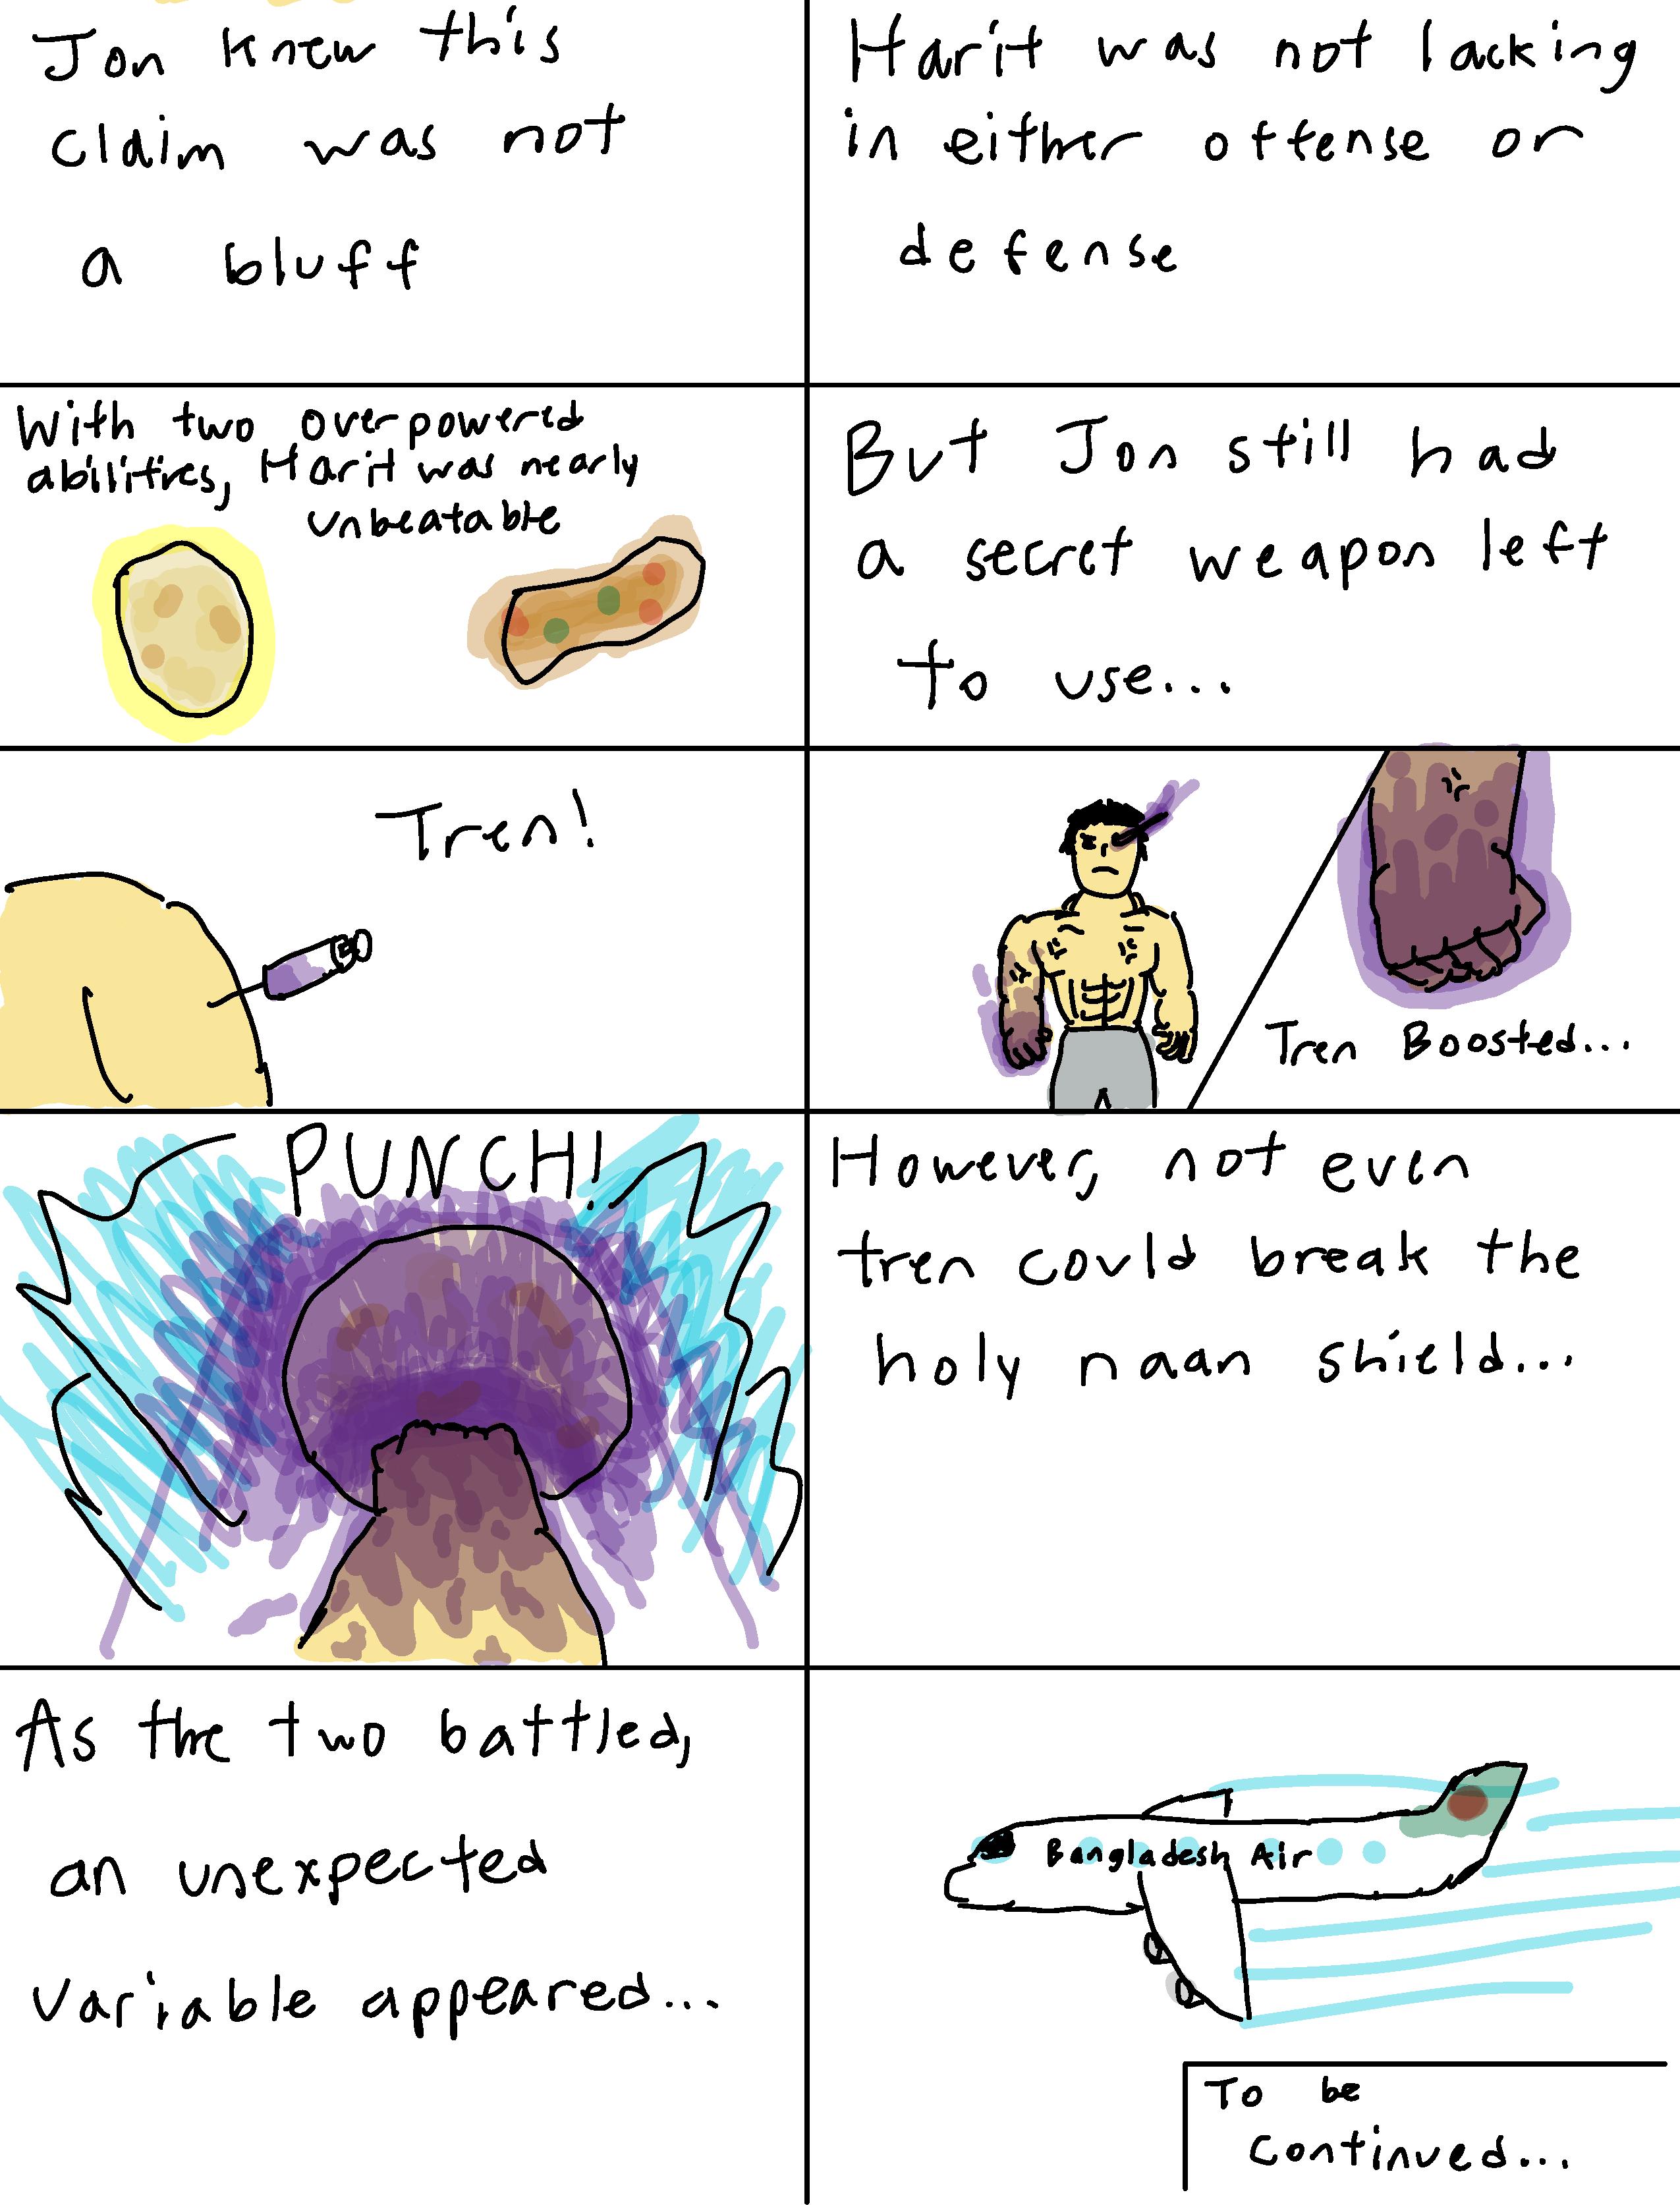 Jon knew this
claim was not
a bluff
Harit was not lacking
in either offense or
defense
With two overpowered
abilities, Harit was nearly
unbeatable
But Jon still had
a secret weapon left
to use...
Tren!
Tren Boosted...
PUNCH!
However, not even
tren could break the
holy naan shield...
As the two battled,
an unexpected
variable appeared...
Bangladesh Air
To be
continued...